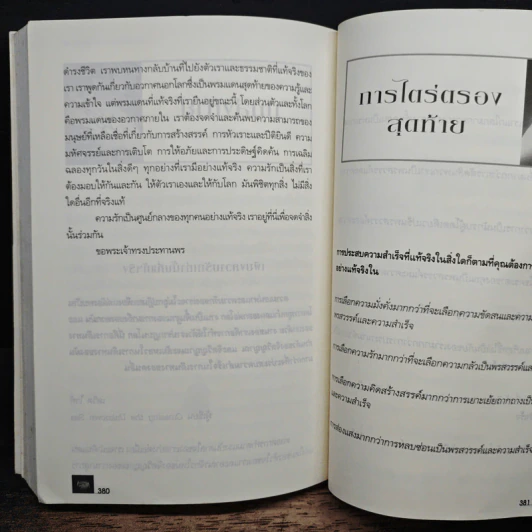 ดำรงชีวิต เราพบหนทางกลับบ้านที่ไปยังตัวเราและธรรมชาติที่แท้จริงของ
เรา เราพูดกันเกี่ยวกับอวกาศนอกโลกซึ่งเป็นพรมแดนสุดท้ายของความรู้และ
ความเข้าใจ แต่พรมแดนที่แท้จริงที่เรายืนอยู่ขณะนี้ โดยส่วนตัวและทั้งโลก
คือพรมแดนของอวกาศภายใน เราต้องจดจำและค้นพบความสามารถของ
มนุษย์ที่เหลือเชื่อที่เกี่ยวกับการสร้างสรรค์ การหัวเราะและปีติยินดี ความ
มหัศจรรย์และการเติบโต การให้อภัยและการประดิษฐ์คิดค้น การเฉลิม
ฉลองทุกวันในสิ่งดีๆ ทุกอย่างที่เรามีอย่างแท้จริง ความรักเป็นสิ่งที่เรา
ต้องมอบให้กันและกัน ให้ตัวเราเองและให้กับโลก มันพิชิตทุกสิ่ง ไม่มีสิ่ง
ใดอื่นอีกที่จริงแท้
ความรักเป็นศูนย์กลางของทุกคนอย่างแท้จริง เราอยู่ที่นี่เพื่อจดจำสิ่ง
นั้นร่วมกัน
ขอพระเจ้าทรงประทานพร
380
การไตร่ตรอง
สุดท้าย
การประสบความสำเร็จที่แท้จริงในสิ่งใดก็ตามที่คุณต้องการ
อย่างแท้จริงใน
การเลือกความมั่งคั่งมากกว่าที่จะเลือกความขัดสนและความ
พรสวรรค์และความสำเร็จ
การเลือกความรักมากกว่าที่จะเลือกความกลัวเป็นพรสวรรค์และ
การเลือกความคิดสร้างสรรค์มากกว่าการเยาะเย้ยถากถางเป็น
และความสำเร็จ
การส่องแสงมากกว่าการหลบซ่อนเป็นพรสวรรค์และความสำเร็จ
381